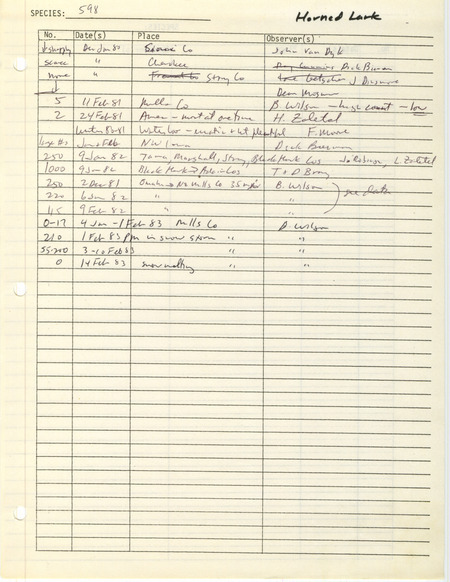 SPECIES: 598
Horned Lark
No. Date(s) Place Observer(s)
Dec Jan 80 Co John Van Dyk
scarce " Cherokee Dick
none " Story Co J. Dinsmore
Dean
5 11 Feb 81 Mills Co B. Wilson - high count - low
2 24 Feb 81 Ames - most at one time H. Zaletel
Winter 80-81 Waterloo - erratic + not plentiful F. Moore
large #s Jan + Feb NW Iowa Dick
250 9 Jan 82 Tama, Marshall, Story, Black Hawk Cos L. Zaletel
1000 9 Jan 82 Black Hawk Cos T + D Bray
250 2 Dec 81 Mills Co 35 B. Wilson
see data
220 6 Jan 82 " "
45 9 Feb 82 "
0-17 4 Jan - 1 Feb 83 Mills Co B. Wilson
210 1 Feb 83 pm in snow storm " "
55-200 3-10 Feb 83 " "
0 14 Feb 83 snow melting " "